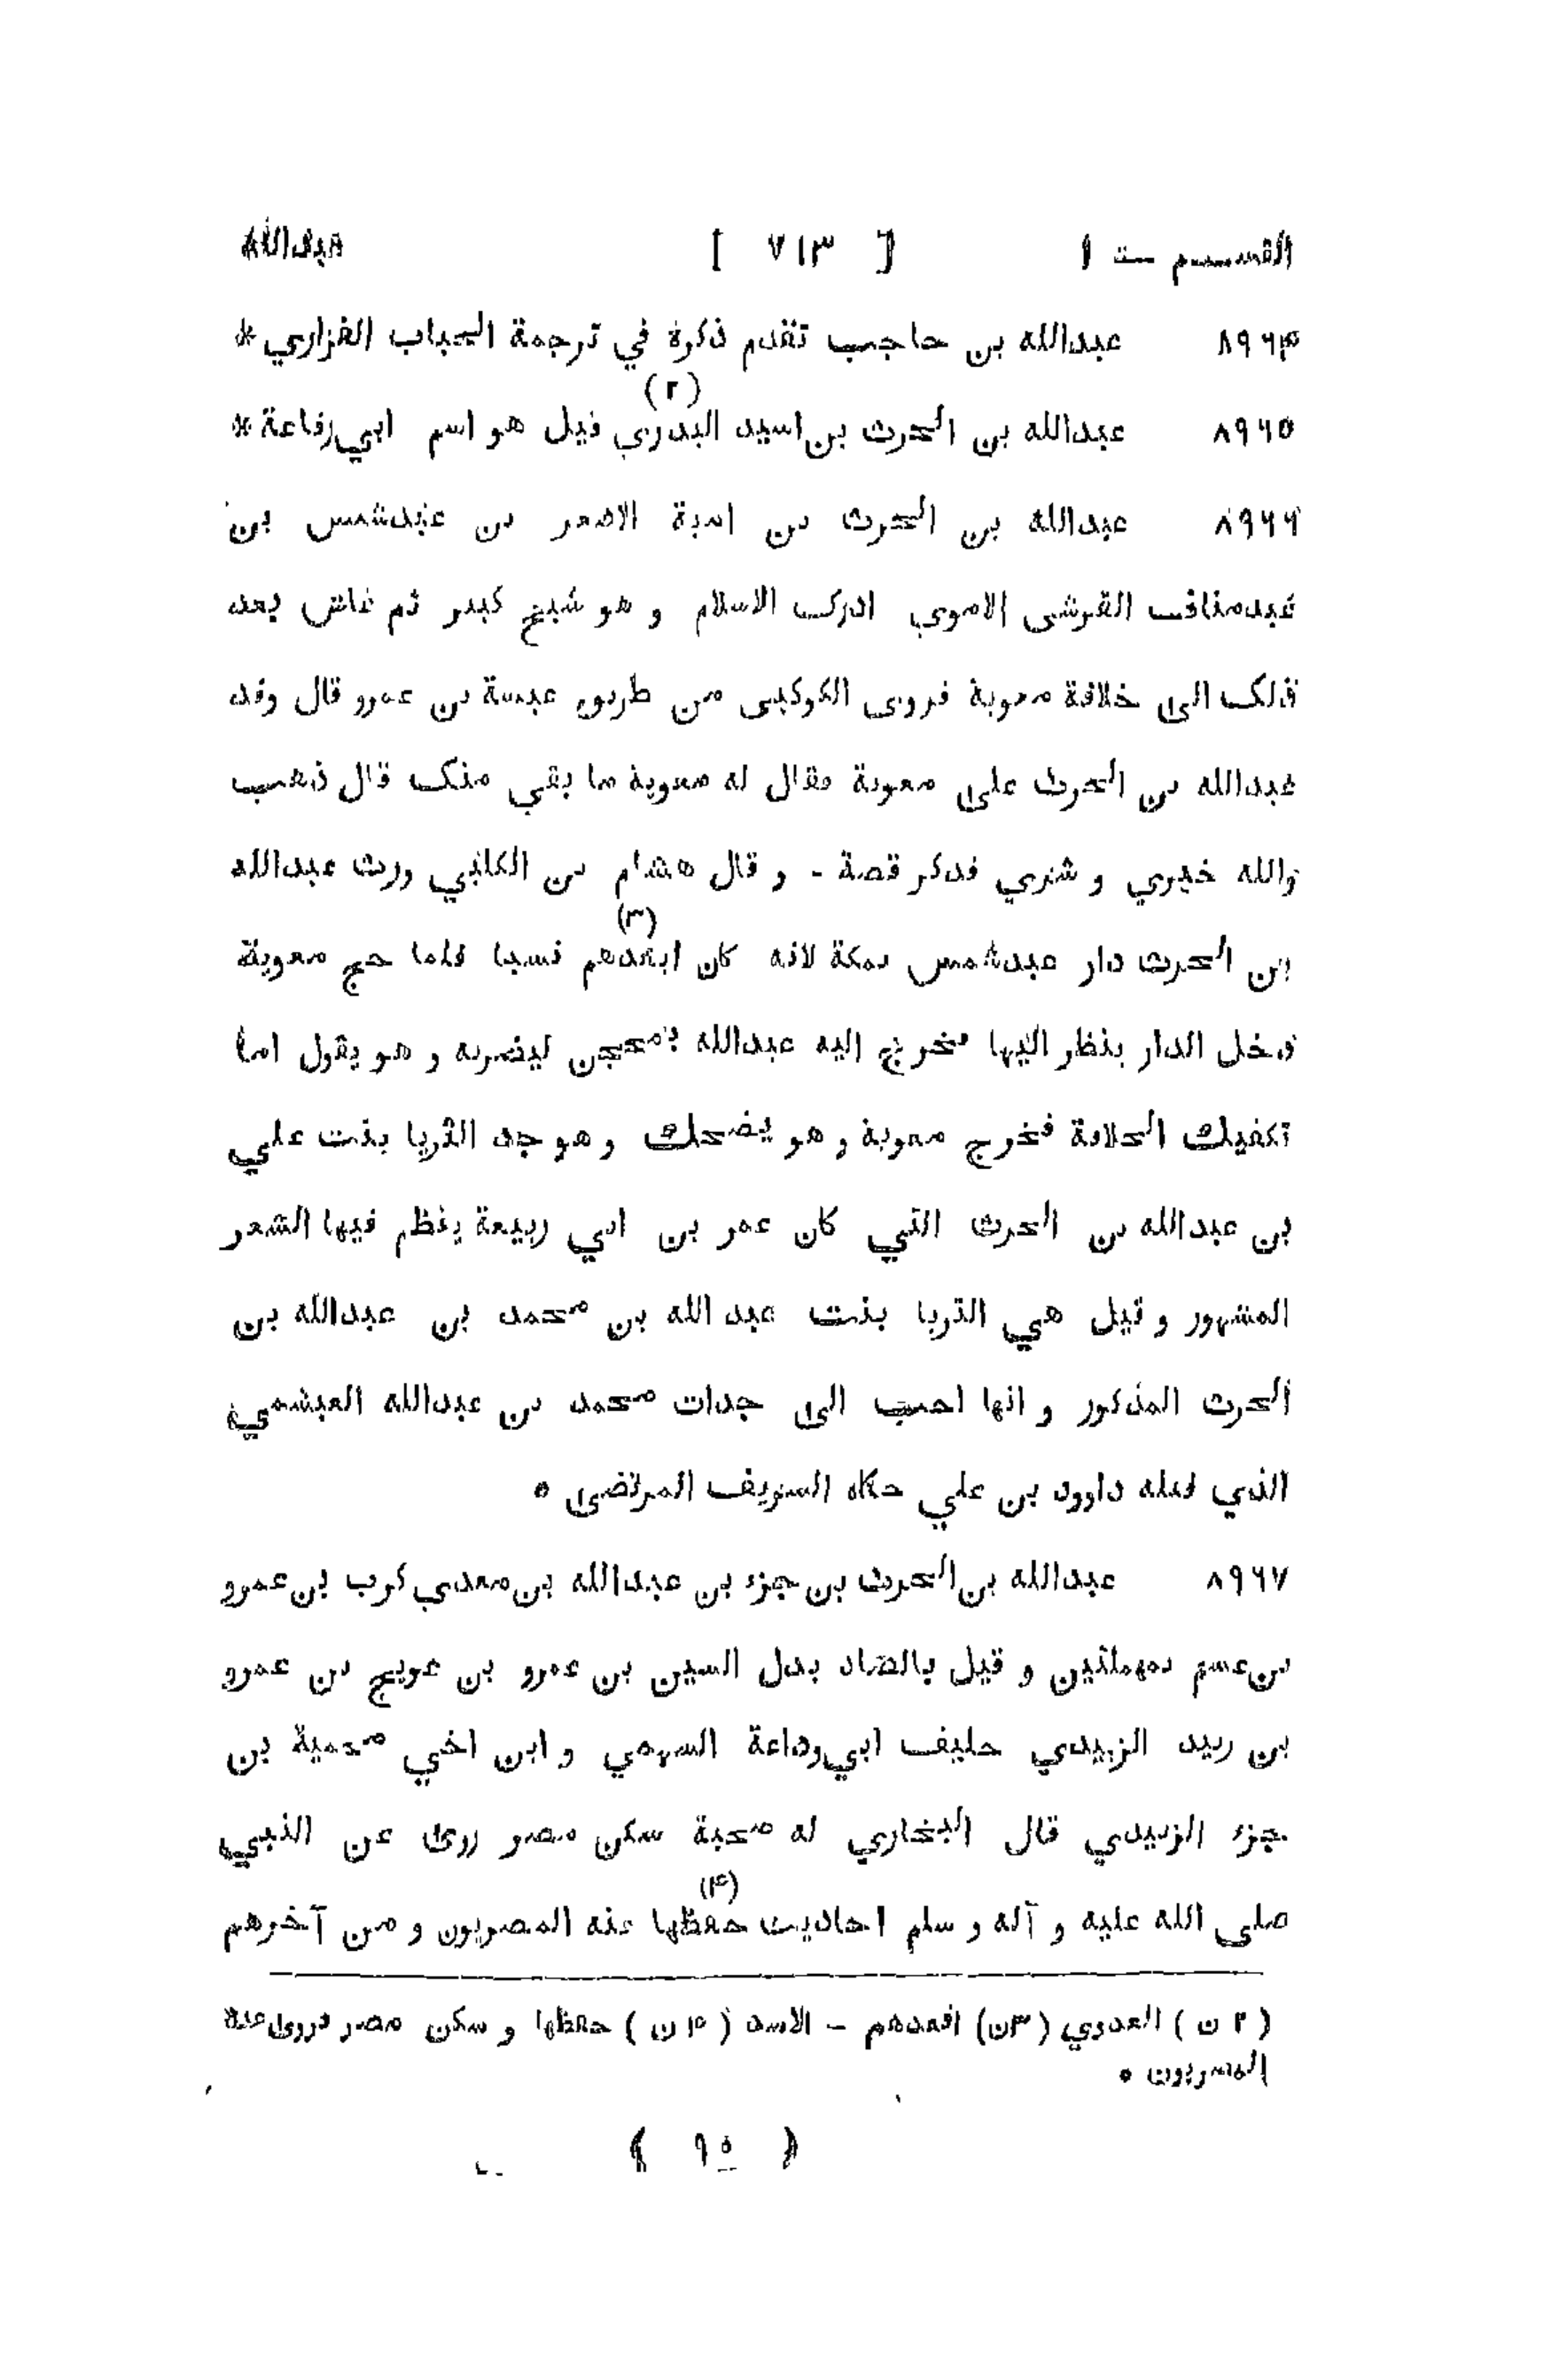 القسم ــت ١ [ ٧١٣ ] عبدالله
٨٩٦۴ عبدالله بن حاجب تقدم ذكرة في ترجمة الحباب الفزاري *
(٢)
٨٩٦٥ عبدالله بن الحرث بن اسيد البدري قيل هو اسم ابي رفاعة *
٨٩٦٦ عبدالله بن الحرث بن امية الاصغر بن عبدشمس بن
عبدمناف القرشى الاموي ادرك الاسلام و هو شيخ كبير ثم عاش بعد
ذلك الى خلافة معوية فروى الكوكبى من طريق عبسة بن عمرو قال وفد
عبدالله بن الحرث على معوية فقال له معوية ما بقي منك قال ذهب
والله خيري و شري فذكر قصة - و قال هشام بن الكلبي ورث عبدالله
(٣)
بن الحرث دار عبدشمس بمكة لانه كان ابعدهم نسبا فلما حج معوية
دخل الدار ينظر اليها فخرج اليه عبدالله بمحجن ليضربه و هو يقول اما
تكفيك الخلافة فخرج معوية و هو يضحك و هو جد الثريا بنت علي
بن عبدالله بن الحرث التي كان عمر بن ابي ربيعة ينظم فيها الشعر
المشهور و قيل هي الثريا بنت عبد الله بن محمد بن عبدالله بن
الحرث المذكور و انها احب الى جدات محمد بن عبدالله العبشمي
الذي قتله داوود بن علي حكاه الشريف المرتضى *
٨٩٦٧ عبدالله بن الحرث بن جزء بن عبدالله بن معدي كرب بن عمرو
بن عسم بمهملتين و قيل بالصاد بدل السين بن عمرو بن عويج بن عمرو
بن زبيد الزبيدي حليف ابي وداعة السهمي و ابن اخي محمية بن
جزء الزبيدي قال البخاري له صحبة سكن مصر روى عن النبي
(۴)
صلى الله عليه و آله و سلم احاديث حفظها عنه المصريون و من آخرهم
( ٢ ن ) العدوي ( ٣ن ) اقعدهم - الاسد ( ۴ ن ) حفظها و سكن مصر فروى عنه
المصريون *
( ٩٠ )